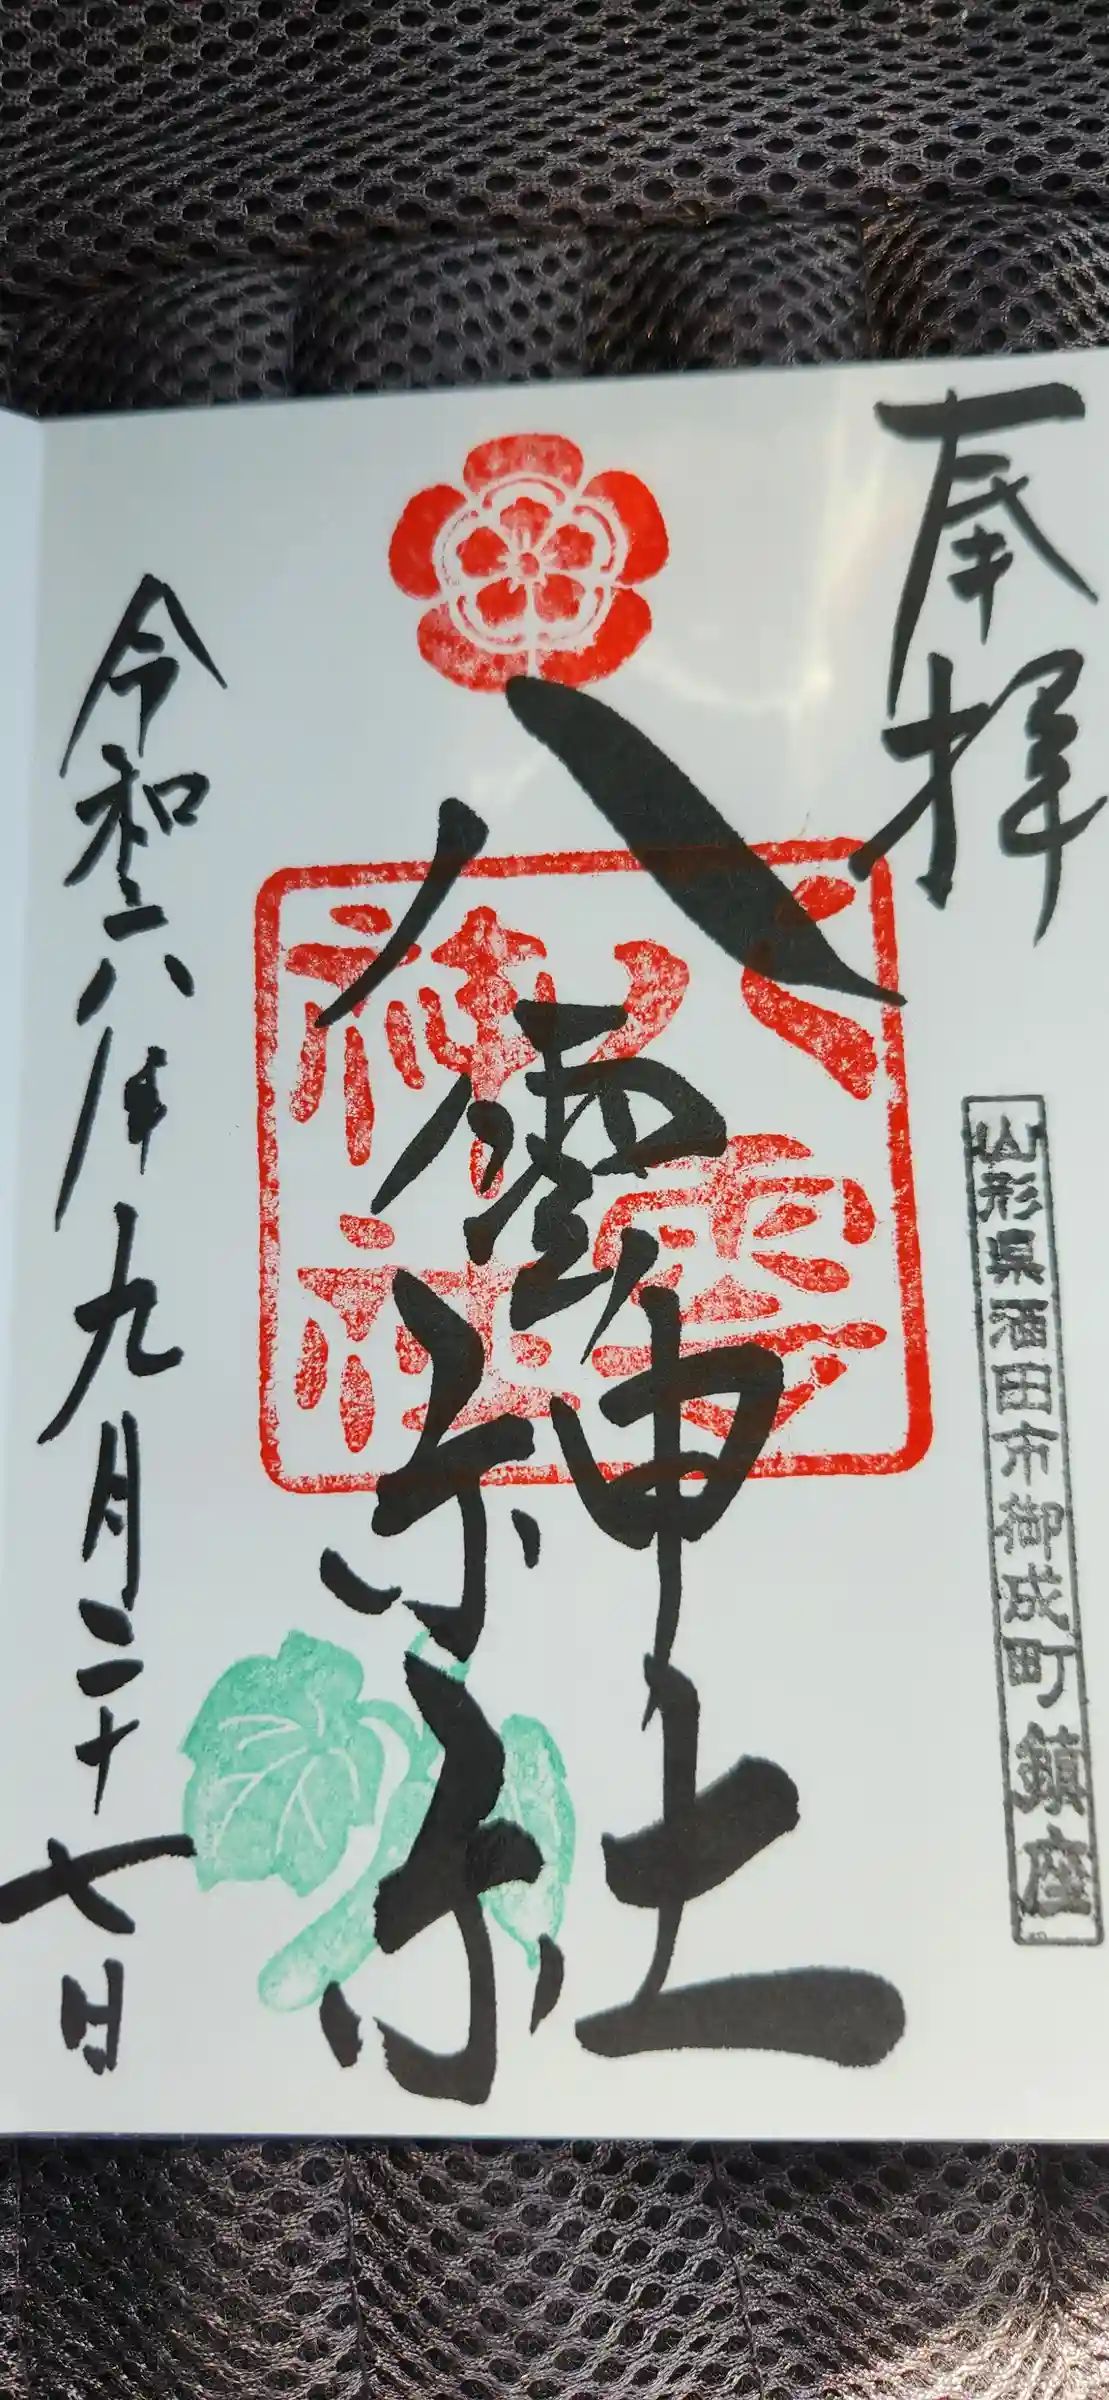 奉拝
山形県酒田市御成町鎮座
八雲神社
八雲
神社
令和六年九月二十七日